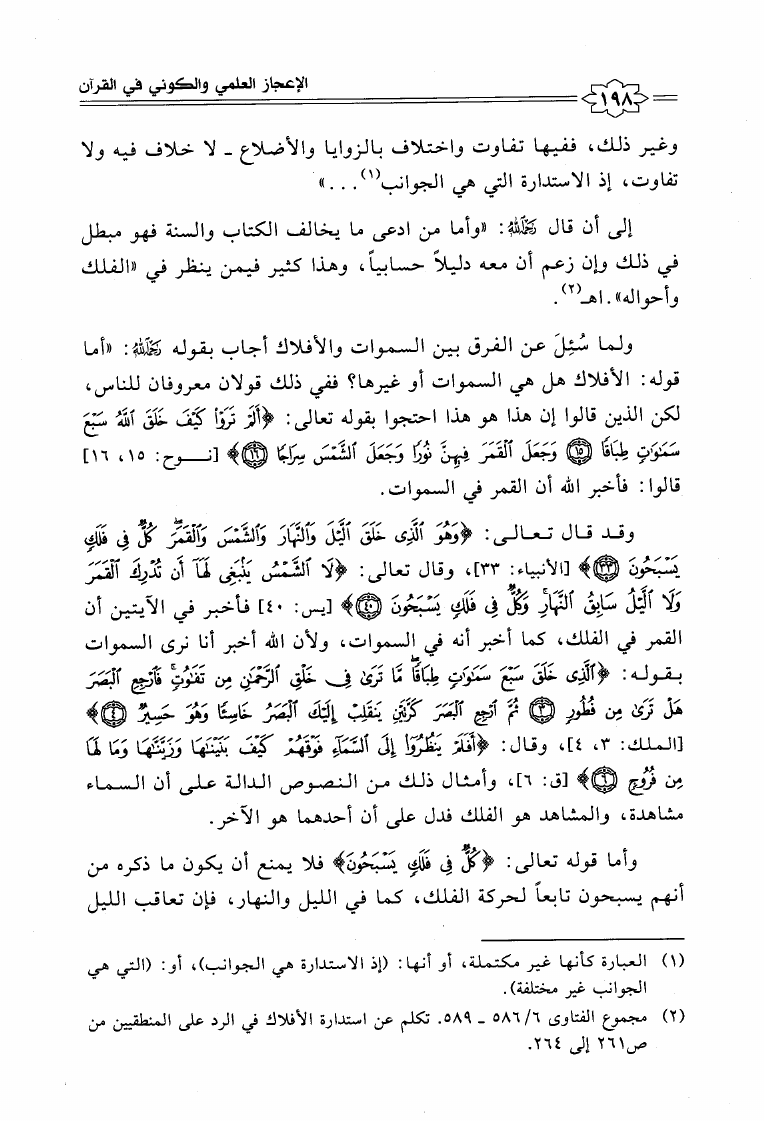 الإعجاز العلمي والكوني في القرآن
١٩٨
وغير ذلك، ففيها تفاوت واختلاف بالزوايا والأضلاع - لا خلاف فيه ولا
تفاوت، إذ الاستدارة التي هي الجوانب(١)...»
إلى أن قال رحمه الله: «وأما من ادعى ما يخالف الكتاب والسنة فهو مبطل
في ذلك وإن زعم أن معه دليلاً حسابياً، وهذا كثير فيمن ينظر في «الفلك
وأحواله». اهـ(٢).
ولما سُئِلَ عن الفرق بين السموات والأفلاك أجاب بقوله رحمه الله: «أما
قوله: الأفلاك هل هي السموات أو غيرها؟ ففي ذلك قولان معروفان للناس،
لكن الذين قالوا إن هذا هو هذا احتجوا بقوله تعالى: ﴿أَلَمْ تَرَوْا۟ كَيْفَ خَلَقَ ٱللَّهُ سَبْعَ
سَمَـٰوَٰتٍ طِبَاقًا ١٥ وَجَعَلَ ٱلْقَمَرَ فِيهِنَّ نُورًا وَجَعَلَ ٱلشَّمْسَ سِرَاجًا ١٦﴾ [نــوح: ١٥، ١٦]
قالوا: فأخبر الله أن القمر في السموات.
وقد قال تعالى: ﴿وَهُوَ ٱلَّذِى خَلَقَ ٱلَّيْلَ وَٱلنَّهَارَ وَٱلشَّمْسَ وَٱلْقَمَرَ ۖ كُلٌّ فِى فَلَكٍ
يَسْبَحُونَ ٣٣﴾ [الأنبياء: ٣٣]، وقال تعالى: ﴿لَا ٱلشَّمْسُ يَنۢبَغِى لَهَآ أَن تُدْرِكَ ٱلْقَمَرَ
وَلَا ٱلَّيْلُ سَابِقُ ٱلنَّهَارِ ۚ وَكُلٌّ فِى فَلَكٍ يَسْبَحُونَ ٤٠﴾ [يس: ٤٠] فأخبر في الآيتين أن
القمر في الفلك، كما أخبر أنه في السموات، ولأن الله أخبر أنا نرى السموات
بقوله: ﴿ٱلَّذِى خَلَقَ سَبْعَ سَمَـٰوَٰتٍ طِبَاقًا ۖ مَّا تَرَىٰ فِى خَلْقِ ٱلرَّحْمَـٰنِ مِن تَفَـٰوُتٍ ۖ فَٱرْجِعِ ٱلْبَصَرَ
هَلْ تَرَىٰ مِن فُطُورٍ ٣ ثُمَّ ٱرْجِعِ ٱلْبَصَرَ كَرَّتَيْنِ يَنقَلِبْ إِلَيْكَ ٱلْبَصَرُ خَاسِئًا وَهُوَ حَسِيرٌ ٤﴾
[الملك: ٣، ٤]، وقال: ﴿أَفَلَمْ يَنظُرُوٓا۟ إِلَى ٱلسَّمَآءِ فَوْقَهُمْ كَيْفَ بَنَيْنَـٰهَا وَزَيَّنَّـٰهَا وَمَا لَهَا
مِن فُرُوجٍ ٦﴾ [ق: ٦]، وأمثال ذلك من النصوص الدالة على أن السماء
مشاهدة، والمشاهد هو الفلك فدل على أن أحدهما هو الآخر.
وأما قوله تعالى: ﴿كُلٌّ فِى فَلَكٍ يَسْبَحُونَ﴾ فلا يمنع أن يكون ما ذكره من
أنهم يسبحون تابعاً لحركة الفلك، كما في الليل والنهار، فإن تعاقب الليل
(١) العبارة كأنها غير مكتملة، أو أنها: (إذ الاستدارة هي الجوانب)، أو: (التي هي
الجوانب غير مختلفة).
(٢) مجموع الفتاوى ٥٨٦/٦ - ٥٨٩. تكلم عن استدارة الأفلاك في الرد على المنطقيين من
ص٢٦١ إلى ٢٦٤.